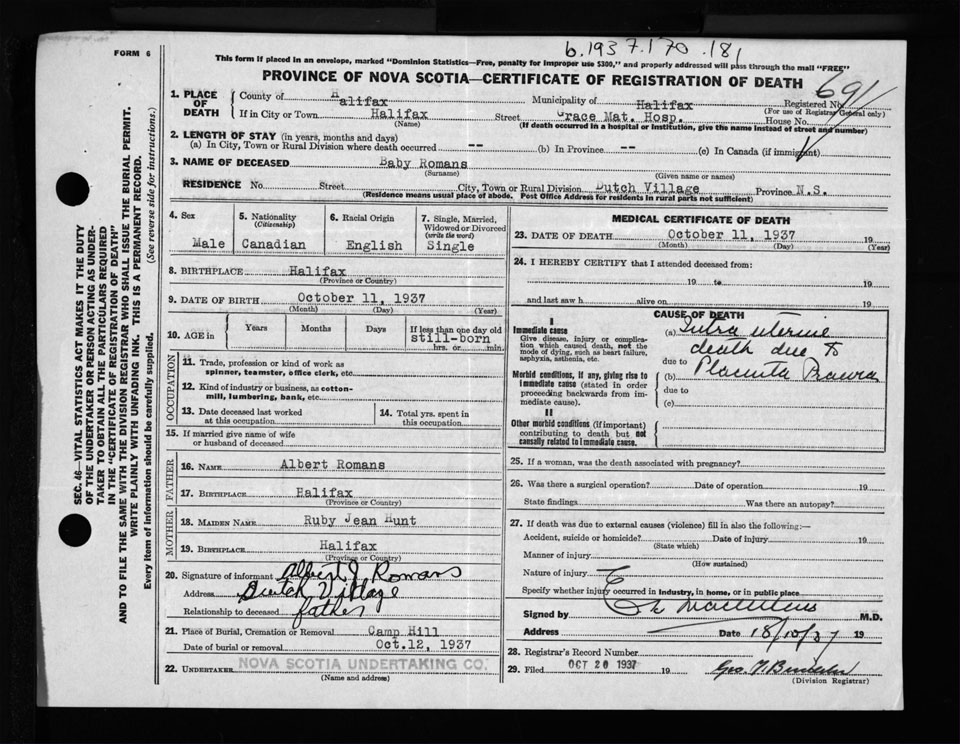 b. 1937. 170. 181
FORM 6
This form if placed in an envelope, marked "Dominion Statistics—Free, penalty for improper use $300," and properly addressed will pass through the mail "FREE"
PROVINCE OF NOVA SCOTIA—CERTIFICATE OF REGISTRATION OF DEATH
691
1. PLACE OF DEATH
County of Halifax Municipality of Halifax Registered No.
(For use of Registrar General only)
If in City or Town Halifax Street Grace Mat. Hosp. House No.
(Name) (If death occurred in a hospital or institution, give the name instead of street and number)
2. LENGTH OF STAY (in years, months and days)
(a) In City, Town or Rural Division where death occurred -- (b) In Province -- (c) In Canada (if immigrant)
3. NAME OF DECEASED Baby Romans
(Surname) (Given name or names)
RESIDENCE No. Street City, Town or Rural Division Dutch Village Province N.S.
(Residence means usual place of abode. Post Office Address for residents in rural parts not sufficient)
4. Sex 5. Nationality (Citizenship) 6. Racial Origin 7. Single, Married, Widowed or Divorced (write the word)
Male Canadian English Single
8. BIRTHPLACE Halifax
(Province or Country)
9. DATE OF BIRTH October 11, 1937
(Month) (Day) (Year)
10. AGE in Years Months Days If less than one day old
still-born
hrs. or min.
OCCUPATION
11. Trade, profession or kind of work as
spinner, teamster, office clerk, etc.
12. Kind of industry or business, as cotton-
mill, lumbering, bank, etc.
13. Date deceased last worked
at this occupation
14. Total yrs. spent in
this occupation
15. If married give name of wife
or husband of deceased
FATHER
16. NAME Albert Romans
17. BIRTHPLACE Halifax
(Province or Country)
MOTHER
18. MAIDEN NAME Ruby Jean Hunt
19. BIRTHPLACE Halifax
(Province or Country)
20. Signature of informant Albert J Romans
Address Dutch Village
Relationship to deceased father
21. Place of Burial, Cremation or Removal Camp Hill
Date of burial or removal Oct.12, 1937
22. UNDERTAKER NOVA SCOTIA UNDERTAKING CO.
(Name and address)
MEDICAL CERTIFICATE OF DEATH
23. DATE OF DEATH October 11, 1937 19
(Month) (Day) (Year)
24. I HEREBY CERTIFY that I attended deceased from:
19 to 19
and last saw h alive on 19
CAUSE OF DEATH
I
Immediate cause
Give disease, injury or complica-
tion which caused death, not the
mode of dying, such as heart failure,
asphyxia, asthenia, etc.
(a) Intra uterine
death due to
due to
Morbid conditions, if any, giving rise to
immediate cause (stated in order
proceeding backwards from im-
mediate cause).
(b) Placenta Praevia
due to
(c)
II
Other morbid conditions (if important)
contributing to death but not
causally related to immediate cause.
25. If a woman, was the death associated with pregnancy?
26. Was there a surgical operation? Date of operation 19
State findings Was there an autopsy?
27. If death was due to external causes (violence) fill in also the following:—
Accident, suicide or homicide? Date of injury 19
(State which)
Manner of injury
(How sustained)
Nature of injury
Specify whether injury occurred in industry, in home, or in public place
Signed by M.D.
Address Date 18/10/37 19
28. Registrar's Record Number
29. Filed OCT 20 1937 19
(Division Registrar)
SEC. 46—VITAL STATISTICS ACT MAKES IT THE DUTY
OF THE UNDERTAKER OR PERSON ACTING AS UNDER-
TAKER TO OBTAIN ALL THE PARTICULARS REQUIRED
IN THE "CERTIFICATE OF REGISTRATION OF DEATH"
AND TO FILE THE SAME WITH THE DIVISION REGISTRAR WHO SHALL ISSUE THE BURIAL PERMIT.
WRITE PLAINLY WITH UNFADING INK. THIS IS A PERMANENT RECORD.
Every item of information should be carefully supplied. (See reverse side for instructions.)